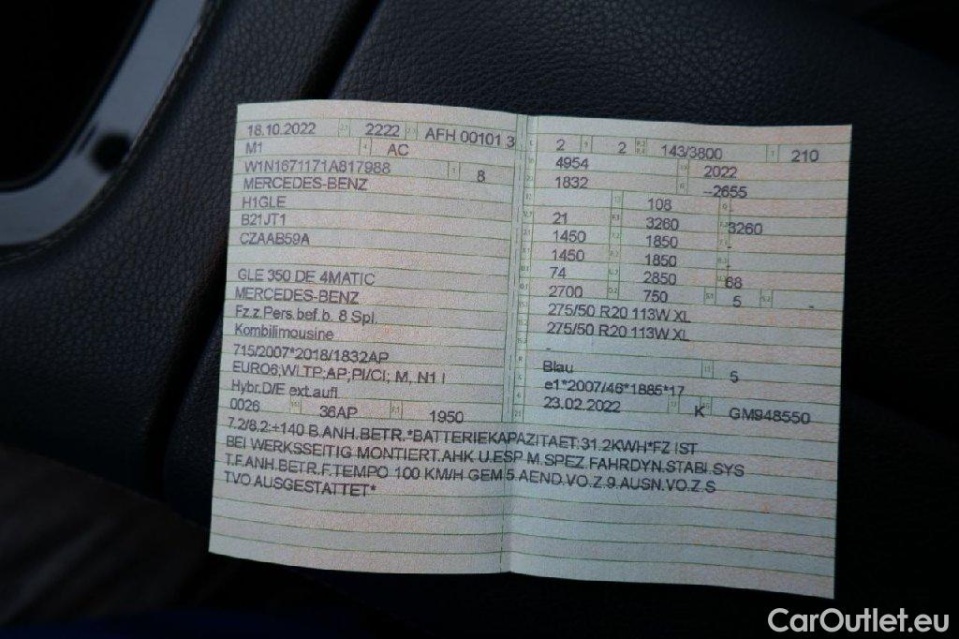 18.10.2022 2222 AFH 00101 3
M1 AC
W1N1671171A817988 8
MERCEDES-BENZ
H1GLE
B21JT1
CZAAB59A
GLE 350 DE 4MATIC
MERCEDES-BENZ
Fz.z.Pers.bef.b. 8 Spl.
Kombilimousine
715/2007*2018/1832AP
EURO6;WLTP;AP;PI/CI; M, N1 I
Hybr.D/E ext.aufl
0026 36AP 1950
2 2 143/3800 210
4954 2022
1832 --2655
108 -
21 3260 3260
1450 1850 -
1450 1850 -
74 2850 68
2700 750 5 -
275/50 R20 113W XL
275/50 R20 113W XL
-
Blau 5
e1*2007/46*1885*17
23.02.2022 K GM948550
7.2/8.2:+140 B.ANH.BETR.*BATTERIEKAPAZITAET:31.2KWH*FZ IST
BEI WERKSSEITIG MONTIERT.AHK U.ESP M.SPEZ.FAHRDYN.STABI.SYS
T.F.ANH.BETR.F.TEMPO 100 KM/H GEM 5.AEND.VO.Z.9.AUSN.VO.Z.S
TVO AUSGESTATTET*
CarOutlet.eu